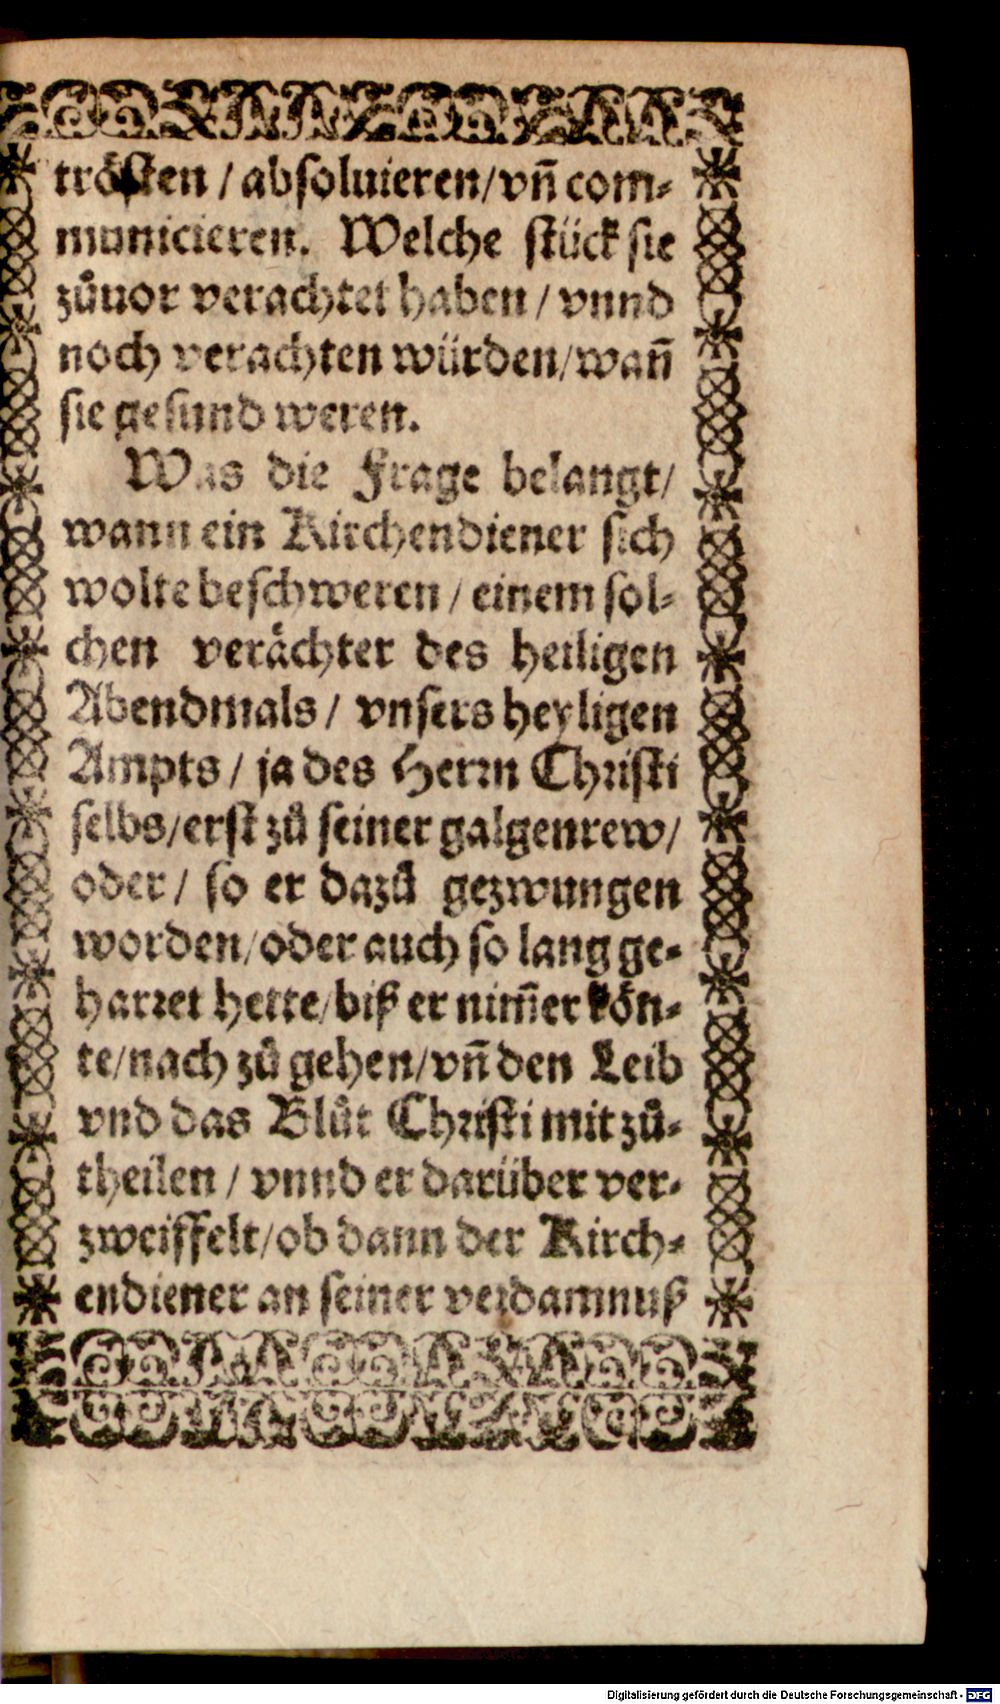 tröſten / abſoluieren/vñ com⸗
municieren. Welche ſtück ſie
zůuor verachtet haben / vnnd
noch verachten würden/wañ
ſie geſund weren.
Was die Frage belangt/
wann ein Kirchendiener ſich
wolte beſchweren / einem ſol⸗
chen verächter des heiligen
Abendmals / vnſers heyligen
Ampts / ja des Herrn Chriſti
ſelbs/erſt zů ſeiner galgenrew/
oder / ſo er dazů gezwungen
worden/oder auch ſo lang ge⸗
harret hette/biß er nim̃er kön⸗
te/nach zů gehen/vñ den Leib
vnd das Blůt Chriſti mit zů⸗
theilen / vnnd er darüber ver⸗
zweiffelt/ob dann der Kirch⸗
endiener an ſeiner verdamnuß
Digitalisierung gefördert durch die Deutsche Forschungsgemeinschaft - DFG